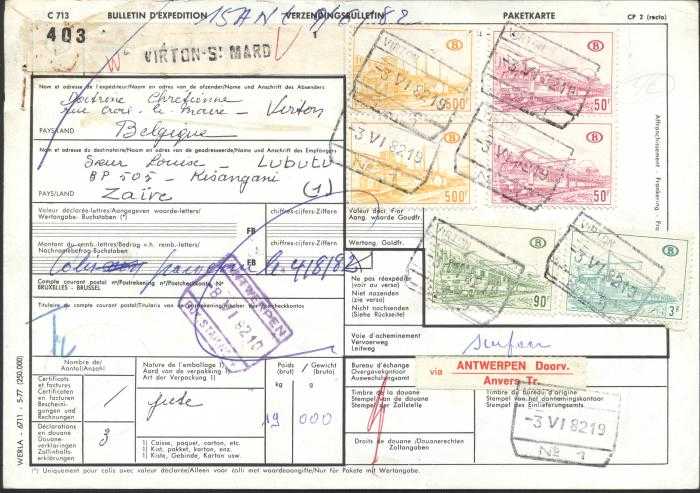 C 713 BULLETIN D'EXPEDITION VERZENDINGSBULLETIN PAKETKARTE CP 2 (recto)
403
VIRTON-St MARD
Nom et adresse de l'expéditeur/Naam en adres van de afzender/Name und Anschrift des Absenders
Doctrine Chrétienne
rue Croix-le-Maire - Virton
PAYS/LAND Belgique
Nom et adresse du destinataire/Naam en adres van de geadresseerde/Name und Anschrift des Empfängers
Sœur Louise - Lubutu
BP 505 - Kisangani
PAYS/LAND Zaïre (1)
Valeur déclarée-lettres/Aangegeven waarde-letters/
Wertangabe Buchstaben (*)
chiffres-cijfers-Ziffern
FB
Valeur décl. Fr-or
Aang. waarde Goudfr.
Montant du remb. lettres/Bedrag v.h. remb.-letters/
Nachnahmebetrag-Buchstaben
chiffres-cijfers-Ziffern
FB
Wertang. Goldfr.
4/8/82
Compte courant postal nr/Postrekening nr/Postscheckkonto nr
BRUXELLES - BRUSSEL
Titulaire du compte courant postal/Titularis van de postrekening
ANTWERPEN
8210
Ne pas réexpédier
(voir au verso)
Niet nazenden
(zie verso)
Nicht nachsenden
(Siehe Rückseite)
Voie d'acheminement
Vervoerweg
Leitweg
surface
Nombre de/Aantal/
Anzahl
Nature de l'emballage 1)
Aard van de verpakking 1)
Art der Verpackung 1)
Poids/Gewicht
(brut) (bruto)
kg gr
Certificats
et factures
Certificaten
en facturen
Bescheini-
gungen und
Rechnungen
Déclarations
en douane
Douane-
verklaringen
Zollinhalts-
erklärungen
3
19 000
1) Caisse, paquet, carton, etc.
1) Kist, pakket, karton, enz.
1) Kiste, Gebinde, Karton usw.
Bureau d'échange
Overgavekantoor
Auswechslungsamt
via ANTWERPEN Doorv.
Anvers Tr.
Timbre de la douane
Stempel van de douane
Stempel der Zollstelle
Timbre du bureau d'origine
Stempel van het aannemingskantoor
Stempel des Einlieferungsamts
Droits de douane/Douanerechten
Zollgebühren
-3 VI 8219
No 1
(*) Uniquement pour colis avec valeur déclarée/Alleen voor colli met waardeaangifte/Nur für Pakete mit Wertangabe.
WERLA - 6711 - 5-77 (250.000)
Affranchissement - Frankering
B 500F
B 50F
VIRTON
-3 VI 8219
No 1
B 500F
B 50F
B 90F
B 3F
VIRTON
-3 VI 8219